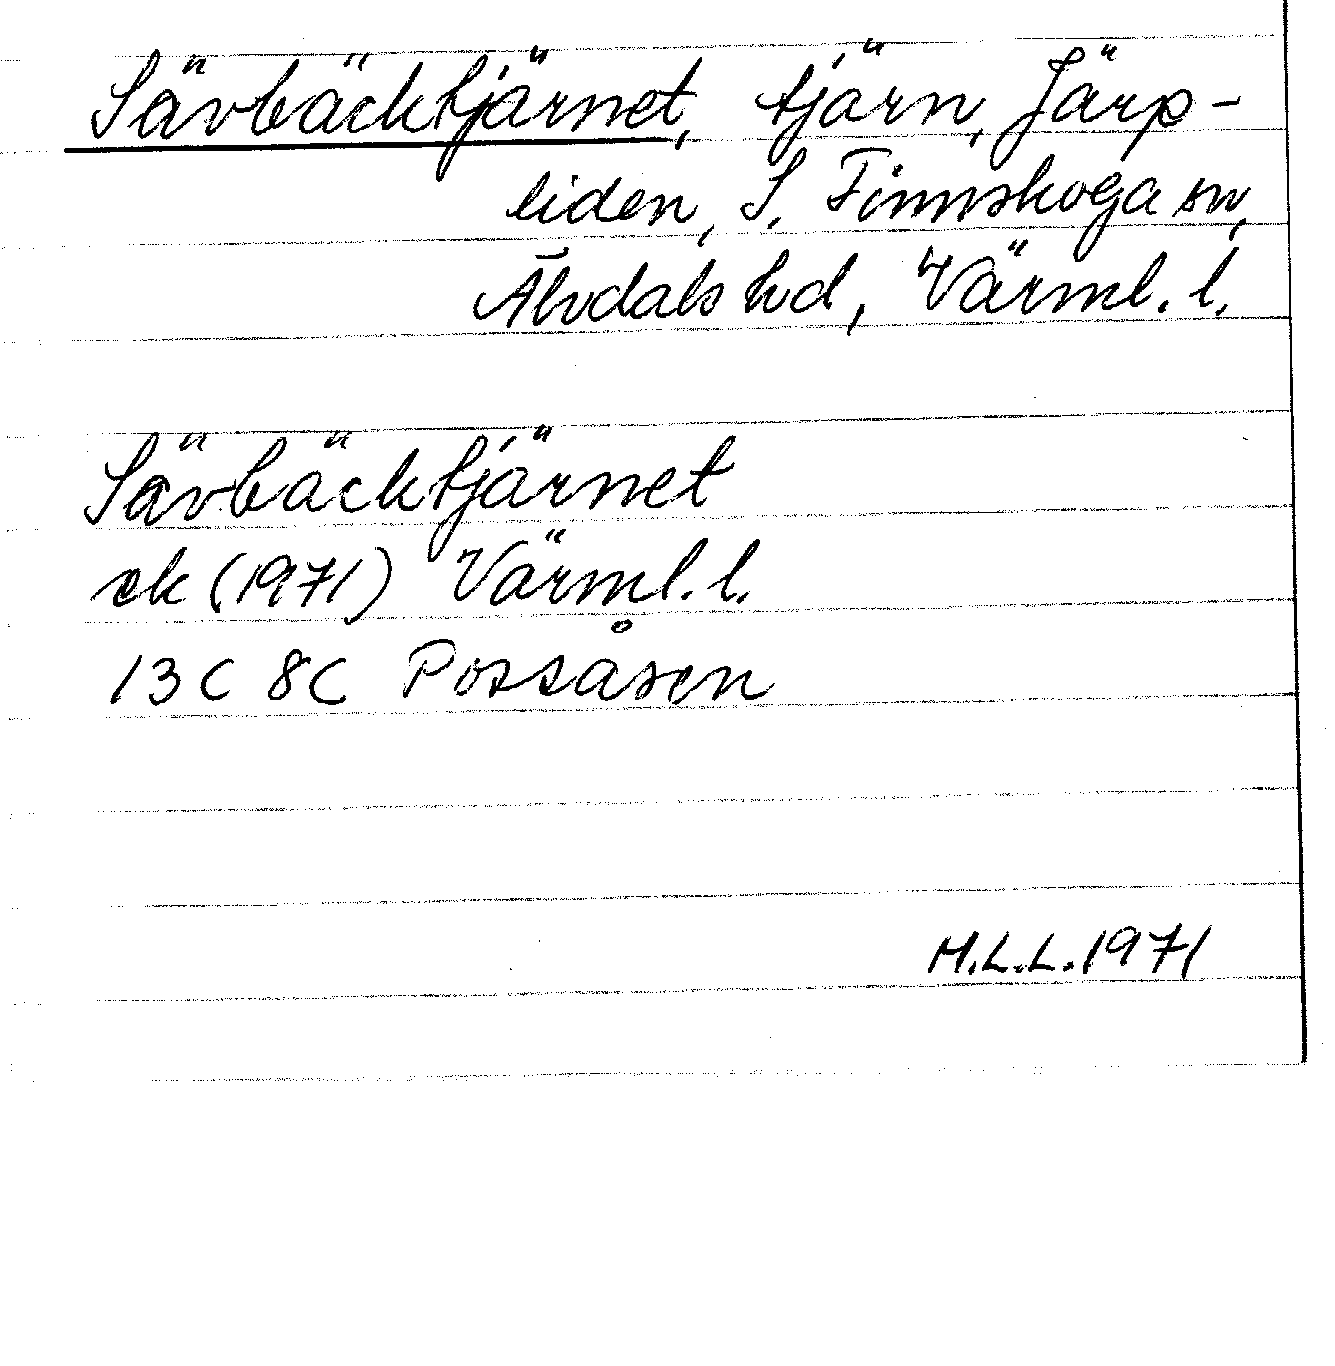 Sävbäcktjärnet, tjärn, Järp-
liden, S. Finnskoga sn,
Älvdals hd, Värml. l.
Sävbäcktjärnet
ek (1971) Värml. l.
13 C 8 C Possåsen
M.L.L. 1971